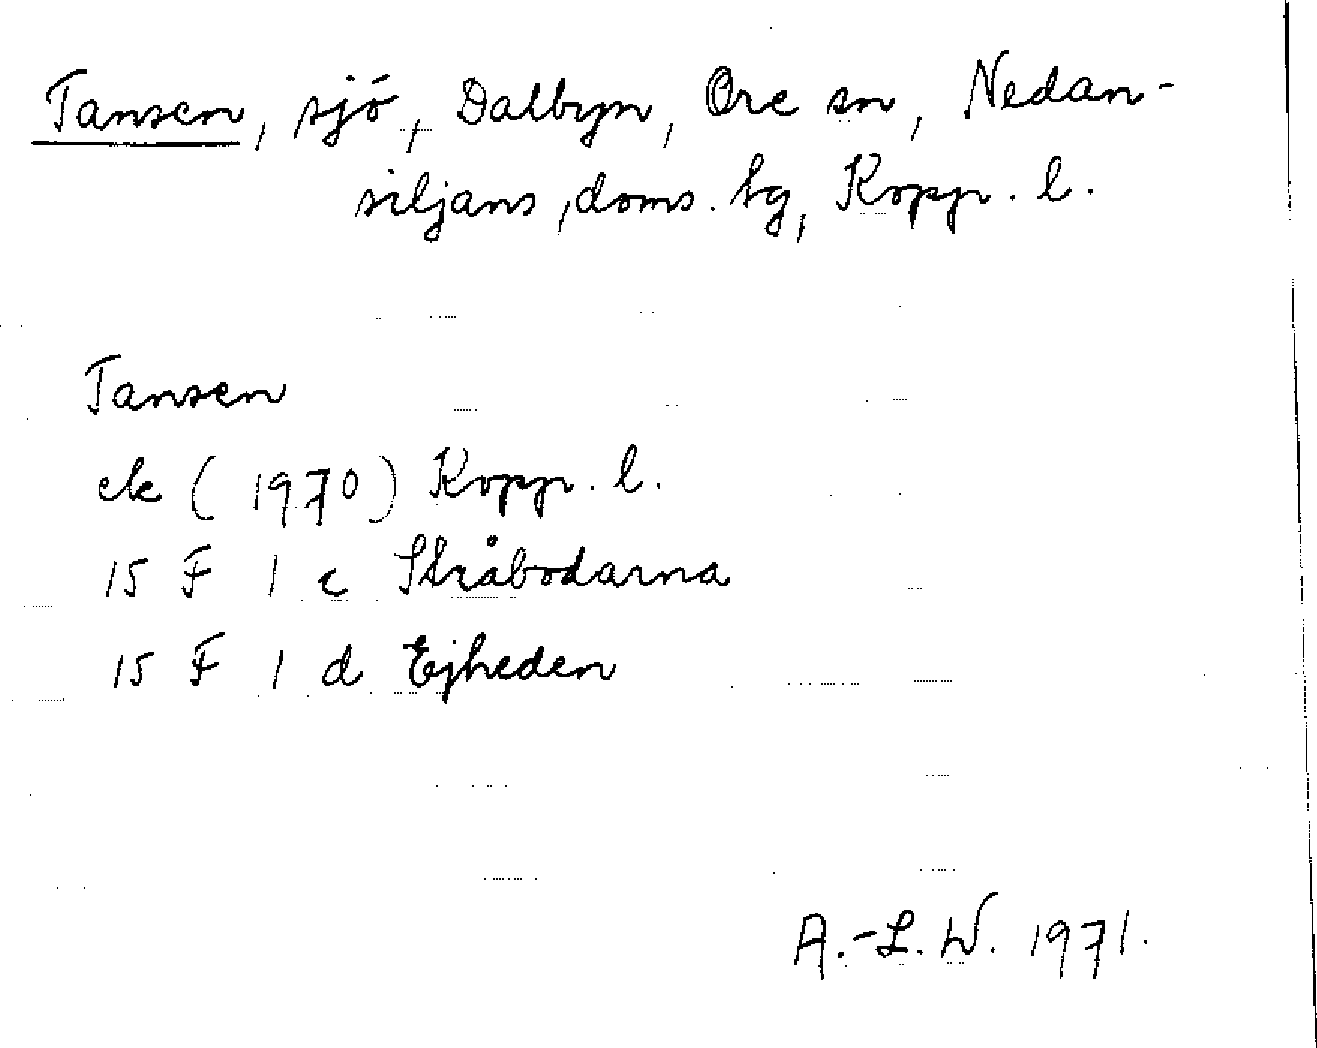 Tansen, sjö, Dalbyn, Ore sn, Nedan-
siljans, doms. hg, Kopp. l.
Tansen
ek (1970) Kopp. l.
15 F 1 c Stråbodarna
15 F 1 d Ejheden
A.-L. W. 1971.